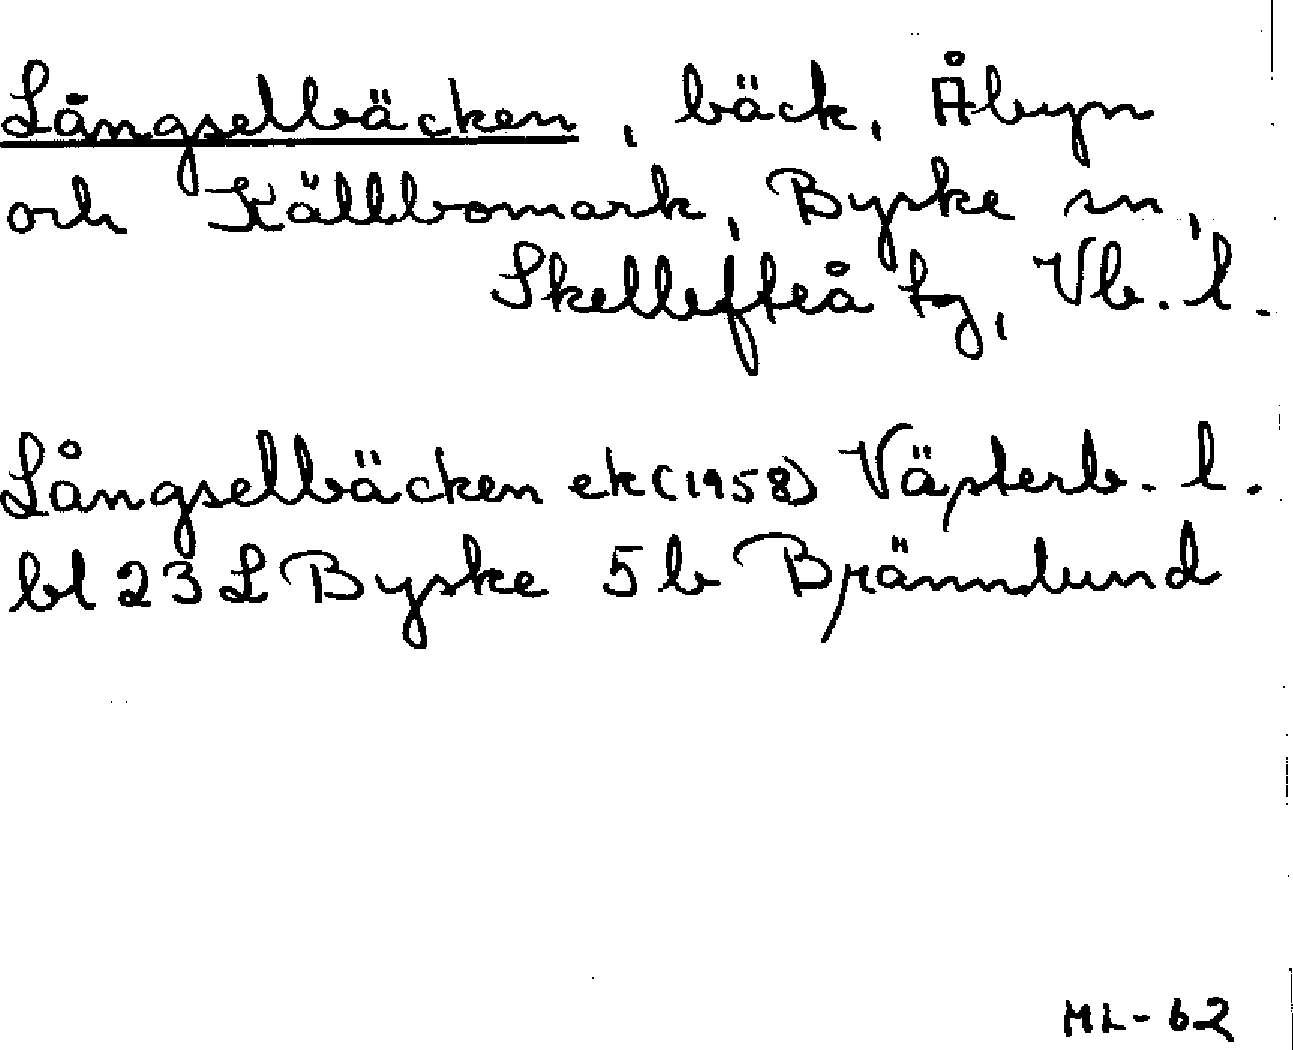 Långselbäcken, bäck, Åbyn
och Källbomark, Byske sn,
Skellefteå tg, Vb. l.
Långselbäcken ek (1958) Västerb. l.
bl 23 L Byske 5 b Brännlund
ML-62